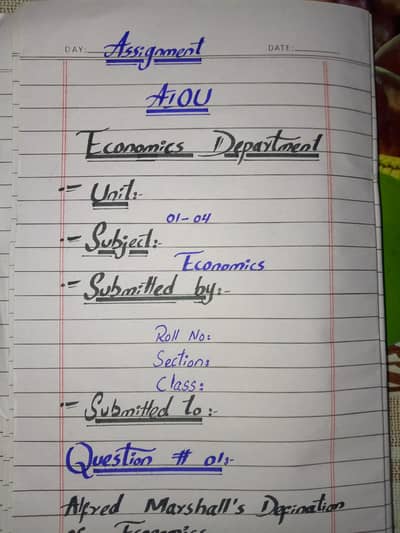 DAY:
Assignment
DATE:
AIOU
Economics Department
Unit:-
01-04
Subject:-
Economics
Submitted by:-
Roll No:
Section:
Class:
Submitted to:-
Question # 01:-
Alfred Marshall's Defination
of Economics